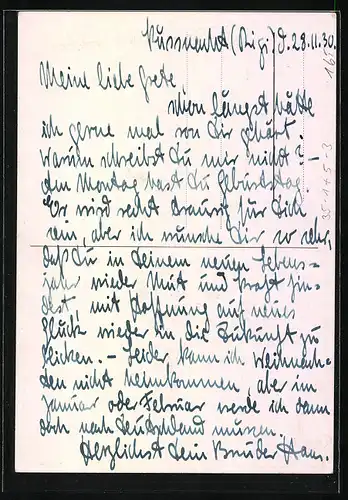 Küssnacht (Rigi) d. 28.11.30.
Meine liebe Grete,
schon längst hätte
ich gerne mal von Dir gehört.
Warum schreibst Du mir nicht? –
den Montag hast Du Geburtstag.
Er wird recht traurig für Dich
sein, aber ich wünsche Dir so sehr,
daß Du in Deinem neuen Lebens-
jahr wieder Mut und Kraft fin-
dest, mit Hoffnung auf neues
Glück wieder in die Zukunft zu
blicken. – Leider kann ich Weihnach-
ten nicht heimkommen, aber im
Januar oder Februar werde ich dann
doch nach Deutschland müssen.
Herzlichst Dein Bruder Hans.
35-175-3